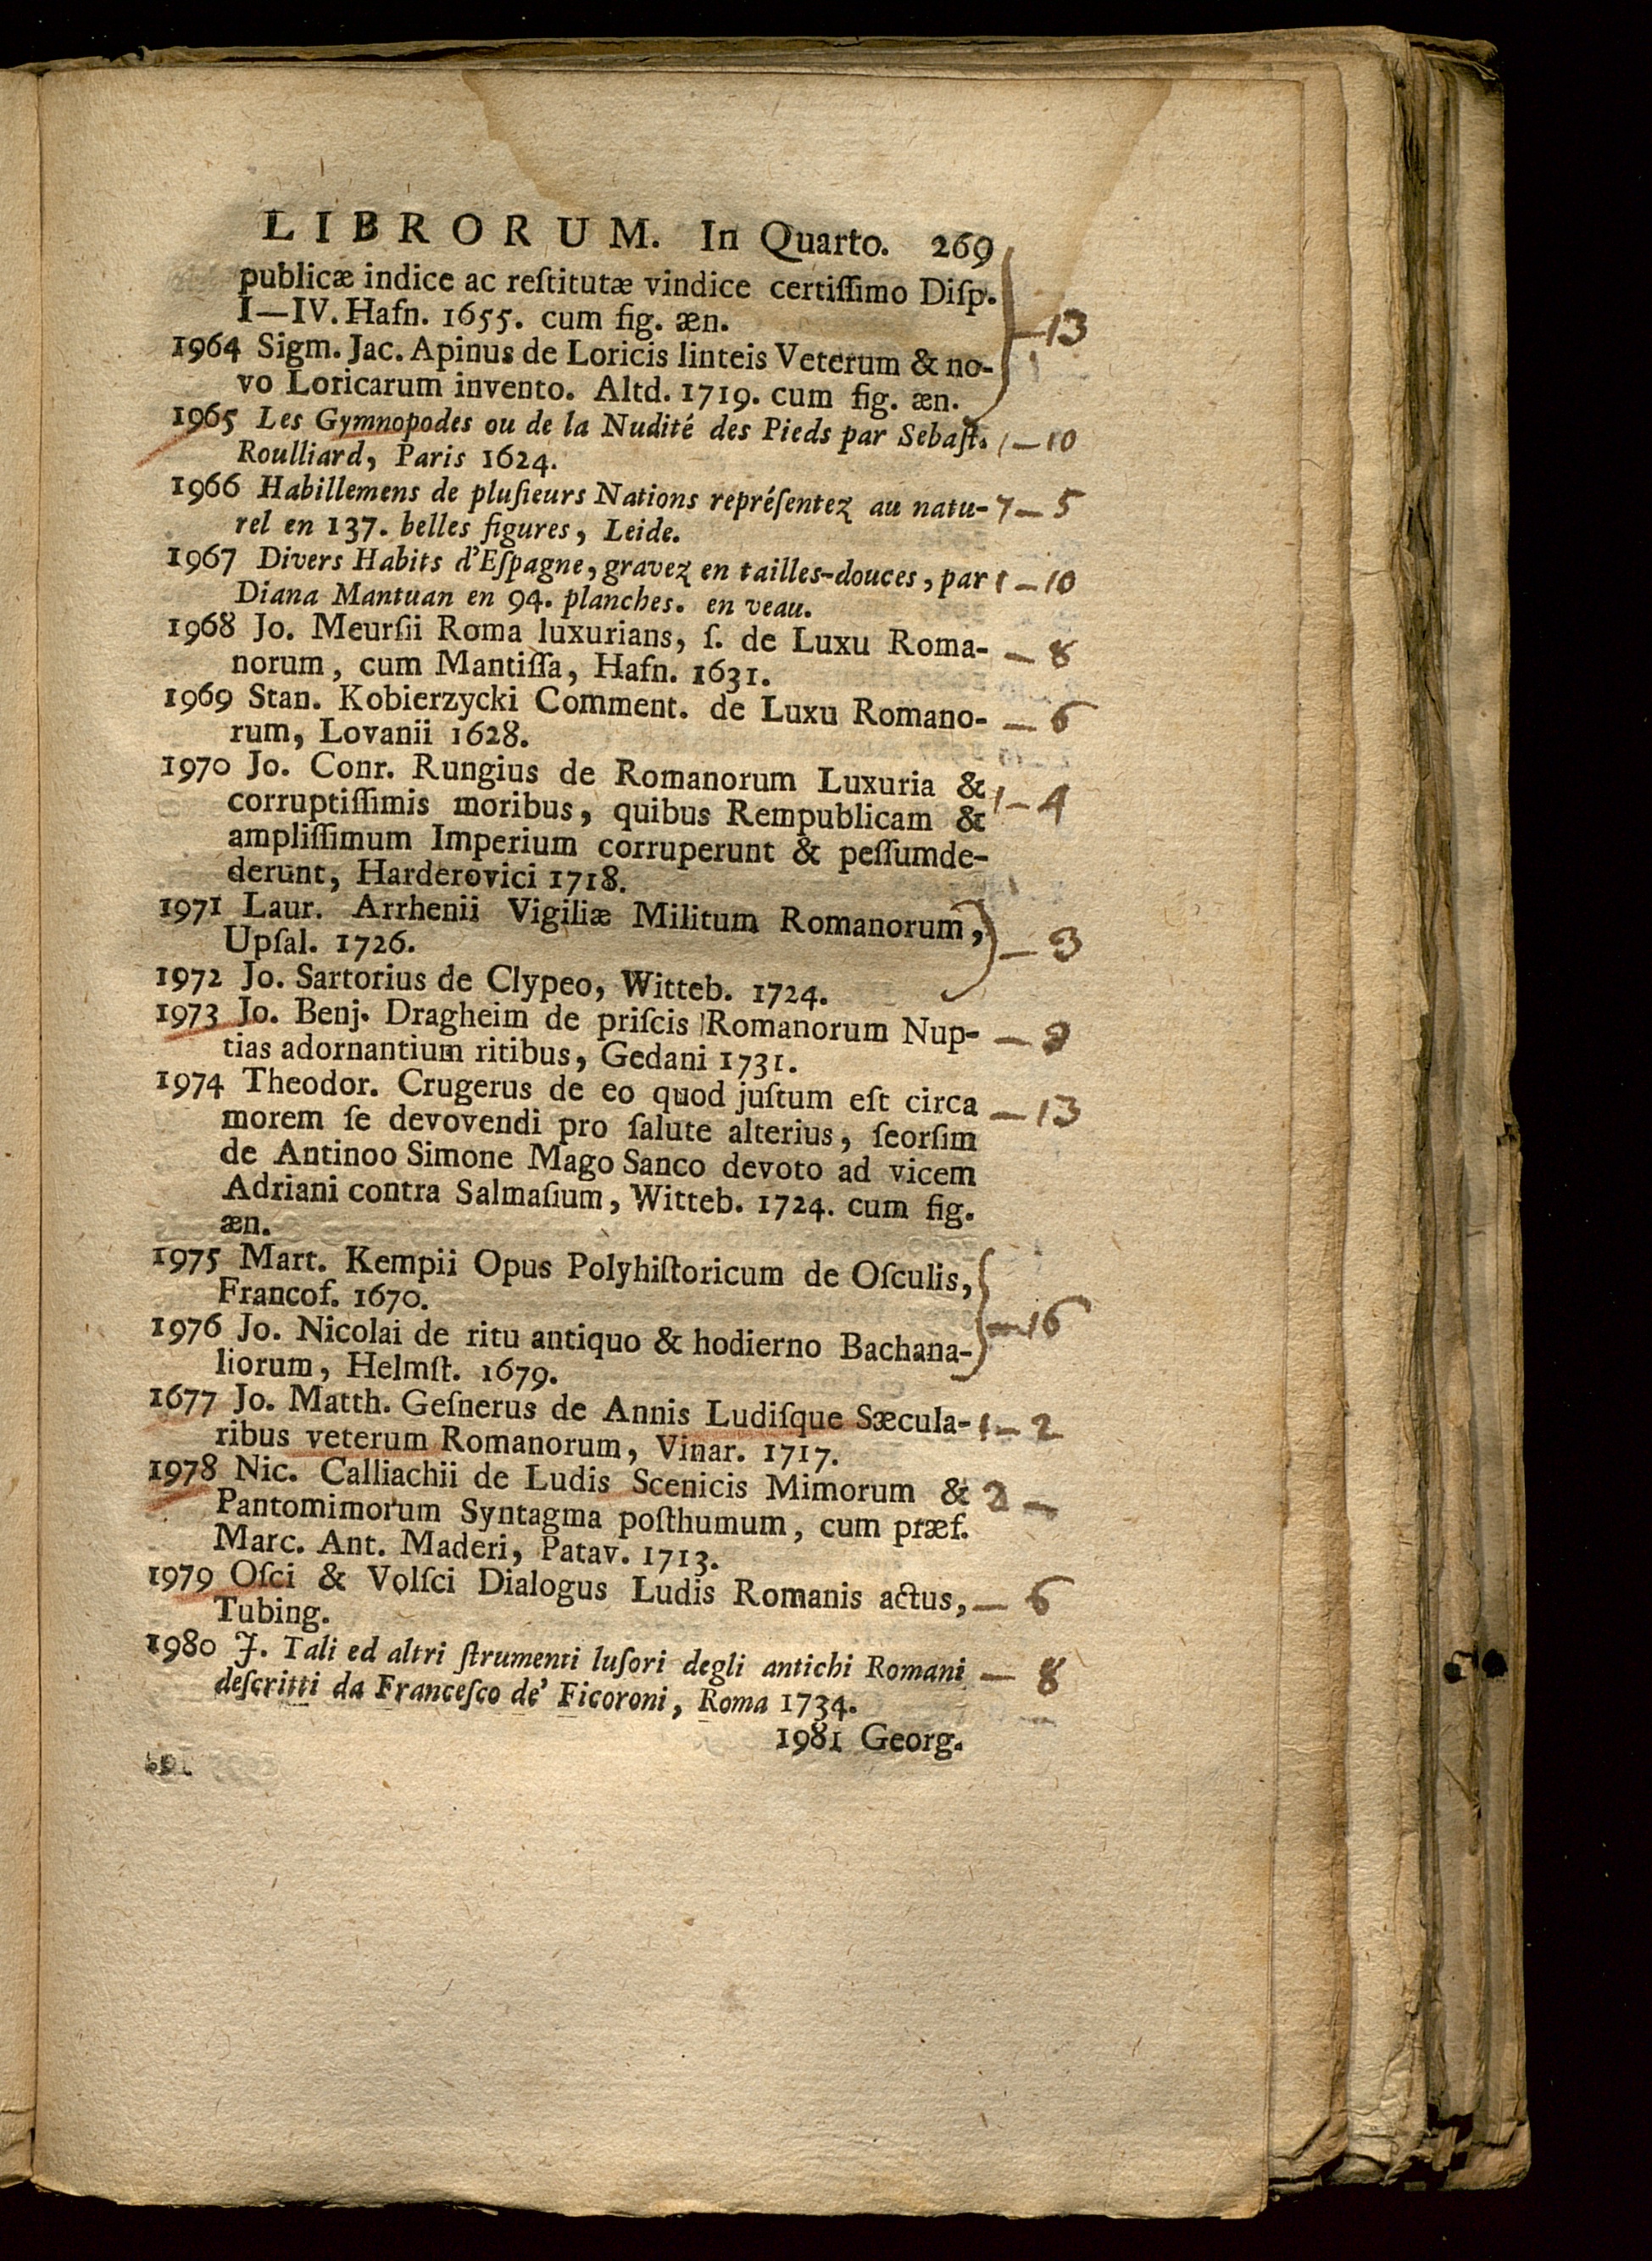 LIBRORUM. In Quarto. 269
publicæ indice ac reſtitutæ vindice certiſſimo Diſp.
I—IV. Hafn. 1655. cum fig. æn. —13
1964 Sigm. Jac. Apinus de Loricis linteis Veterum & no-
vo Loricarum invento. Altd. 1719. cum fig. æn.
1965 Les Gymnopodes ou de la Nudité des Pieds par Sebaſt. 1—10
Roulliard, Paris 1624.
1966 Habillemens de pluſieurs Nations repréſentez au natu- 7—5
rel en 137. belles figures, Leide.
1967 Divers Habits d'Eſpagne, gravez en tailles-douces, par 1—10
Diana Mantuan en 94. planches. en veau.
1968 Jo. Meurſii Roma luxurians, ſ. de Luxu Roma- —8
norum, cum Mantiſſa, Hafn. 1631.
1969 Stan. Kobierzycki Comment. de Luxu Romano- —6
rum, Lovanii 1628.
1970 Jo. Conr. Rungius de Romanorum Luxuria & 1—4
corruptiſſimis moribus, quibus Rempublicam &
ampliſſimum Imperium corruperunt & peſſumde-
derunt, Harderovici 1718.
1971 Laur. Arrhenii Vigiliæ Militum Romanorum, —3
Upſal. 1726.
1972 Jo. Sartorius de Clypeo, Witteb. 1724.
1973 Jo. Benj. Dragheim de priſcis Romanorum Nup- —
tias adornantium ritibus, Gedani 1731.
1974 Theodor. Crugerus de eo quod juſtum eſt circa —13
morem ſe devovendi pro ſalute alterius, ſeorſim
de Antinoo Simone Mago Sanco devoto ad vicem
Adriani contra Salmaſium, Witteb. 1724. cum fig.
æn.
1975 Mart. Kempii Opus Polyhiſtoricum de Oſculis,
Francof. 1670. —16
1976 Jo. Nicolai de ritu antiquo & hodierno Bachana-
liorum, Helmſt. 1679.
1677 Jo. Matth. Geſnerus de Annis Ludiſque Sæcula- 1—2
ribus veterum Romanorum, Vinar. 1717.
1978 Nic. Calliachii de Ludis Scenicis Mimorum & 2—
Pantomimorum Syntagma poſthumum, cum præf.
Marc. Ant. Maderi, Patav. 1713.
1979 Oſci & Volſci Dialogus Ludis Romanis actus, —6
Tubing.
1980 J. Tali ed altri ſtrumenti luſori degli antichi Romani —8
deſcritti da Franceſco de' Ficoroni, Roma 1734.
1981 Georg.